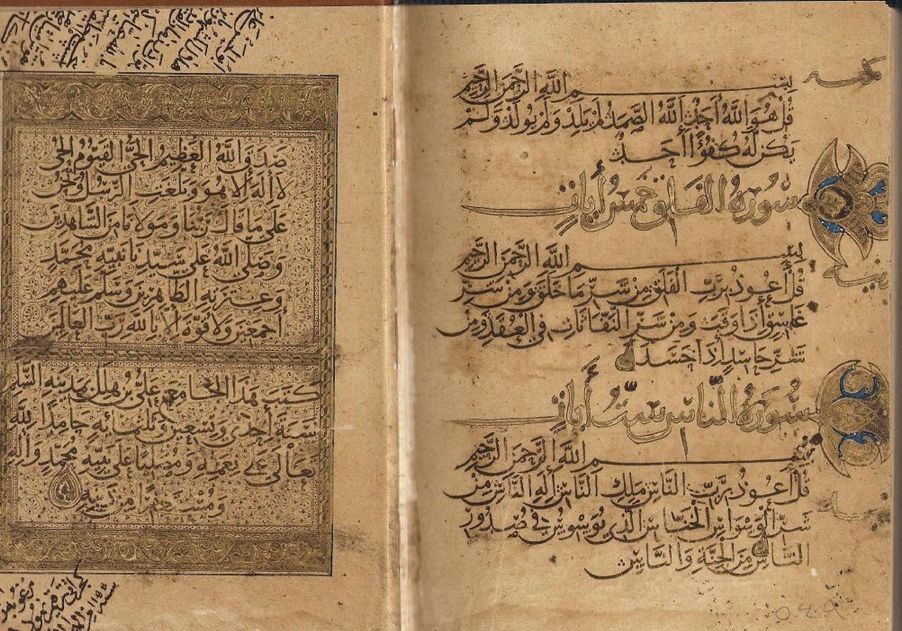 بسم الله الرحمن الرحيم
قل هو الله أحد الله الصمد لم يلد ولم يولد ولم
يكن له كفؤا أحد
سورة الفلق خمس آيات
بسم الله الرحمن الرحيم
قل أعوذ برب الفلق من شر ما خلق ومن شر
غاسق إذا وقب ومن شر النفاثات في العقد ومن
شر حاسد إذا حسد
سورة الناس ست آيات
بسم الله الرحمن الرحيم
قل أعوذ برب الناس ملك الناس إله الناس من
شر الوسواس الخناس الذي يوسوس في صدور
الناس من الجنة والناس
صدق الله العظيم الحي القيوم
لا إله إلا هو وبلغت الرسل ونحن
على ما قال ربنا ومولانا من الشاهدين
وصلى الله على نبيه محمد
وعترته الطاهرين وسلم عليهم
أجمعين ولا قوة إلا بالله رب العالمين
كتب هذا الجامع علي بن هلال بمدينة السلام
سنة إحدى وتسعين وثلثمائة حامدا لله
تعالى على نعمه ومصليا على نبيه محمد وآله
ومستغفرا من ذنبه